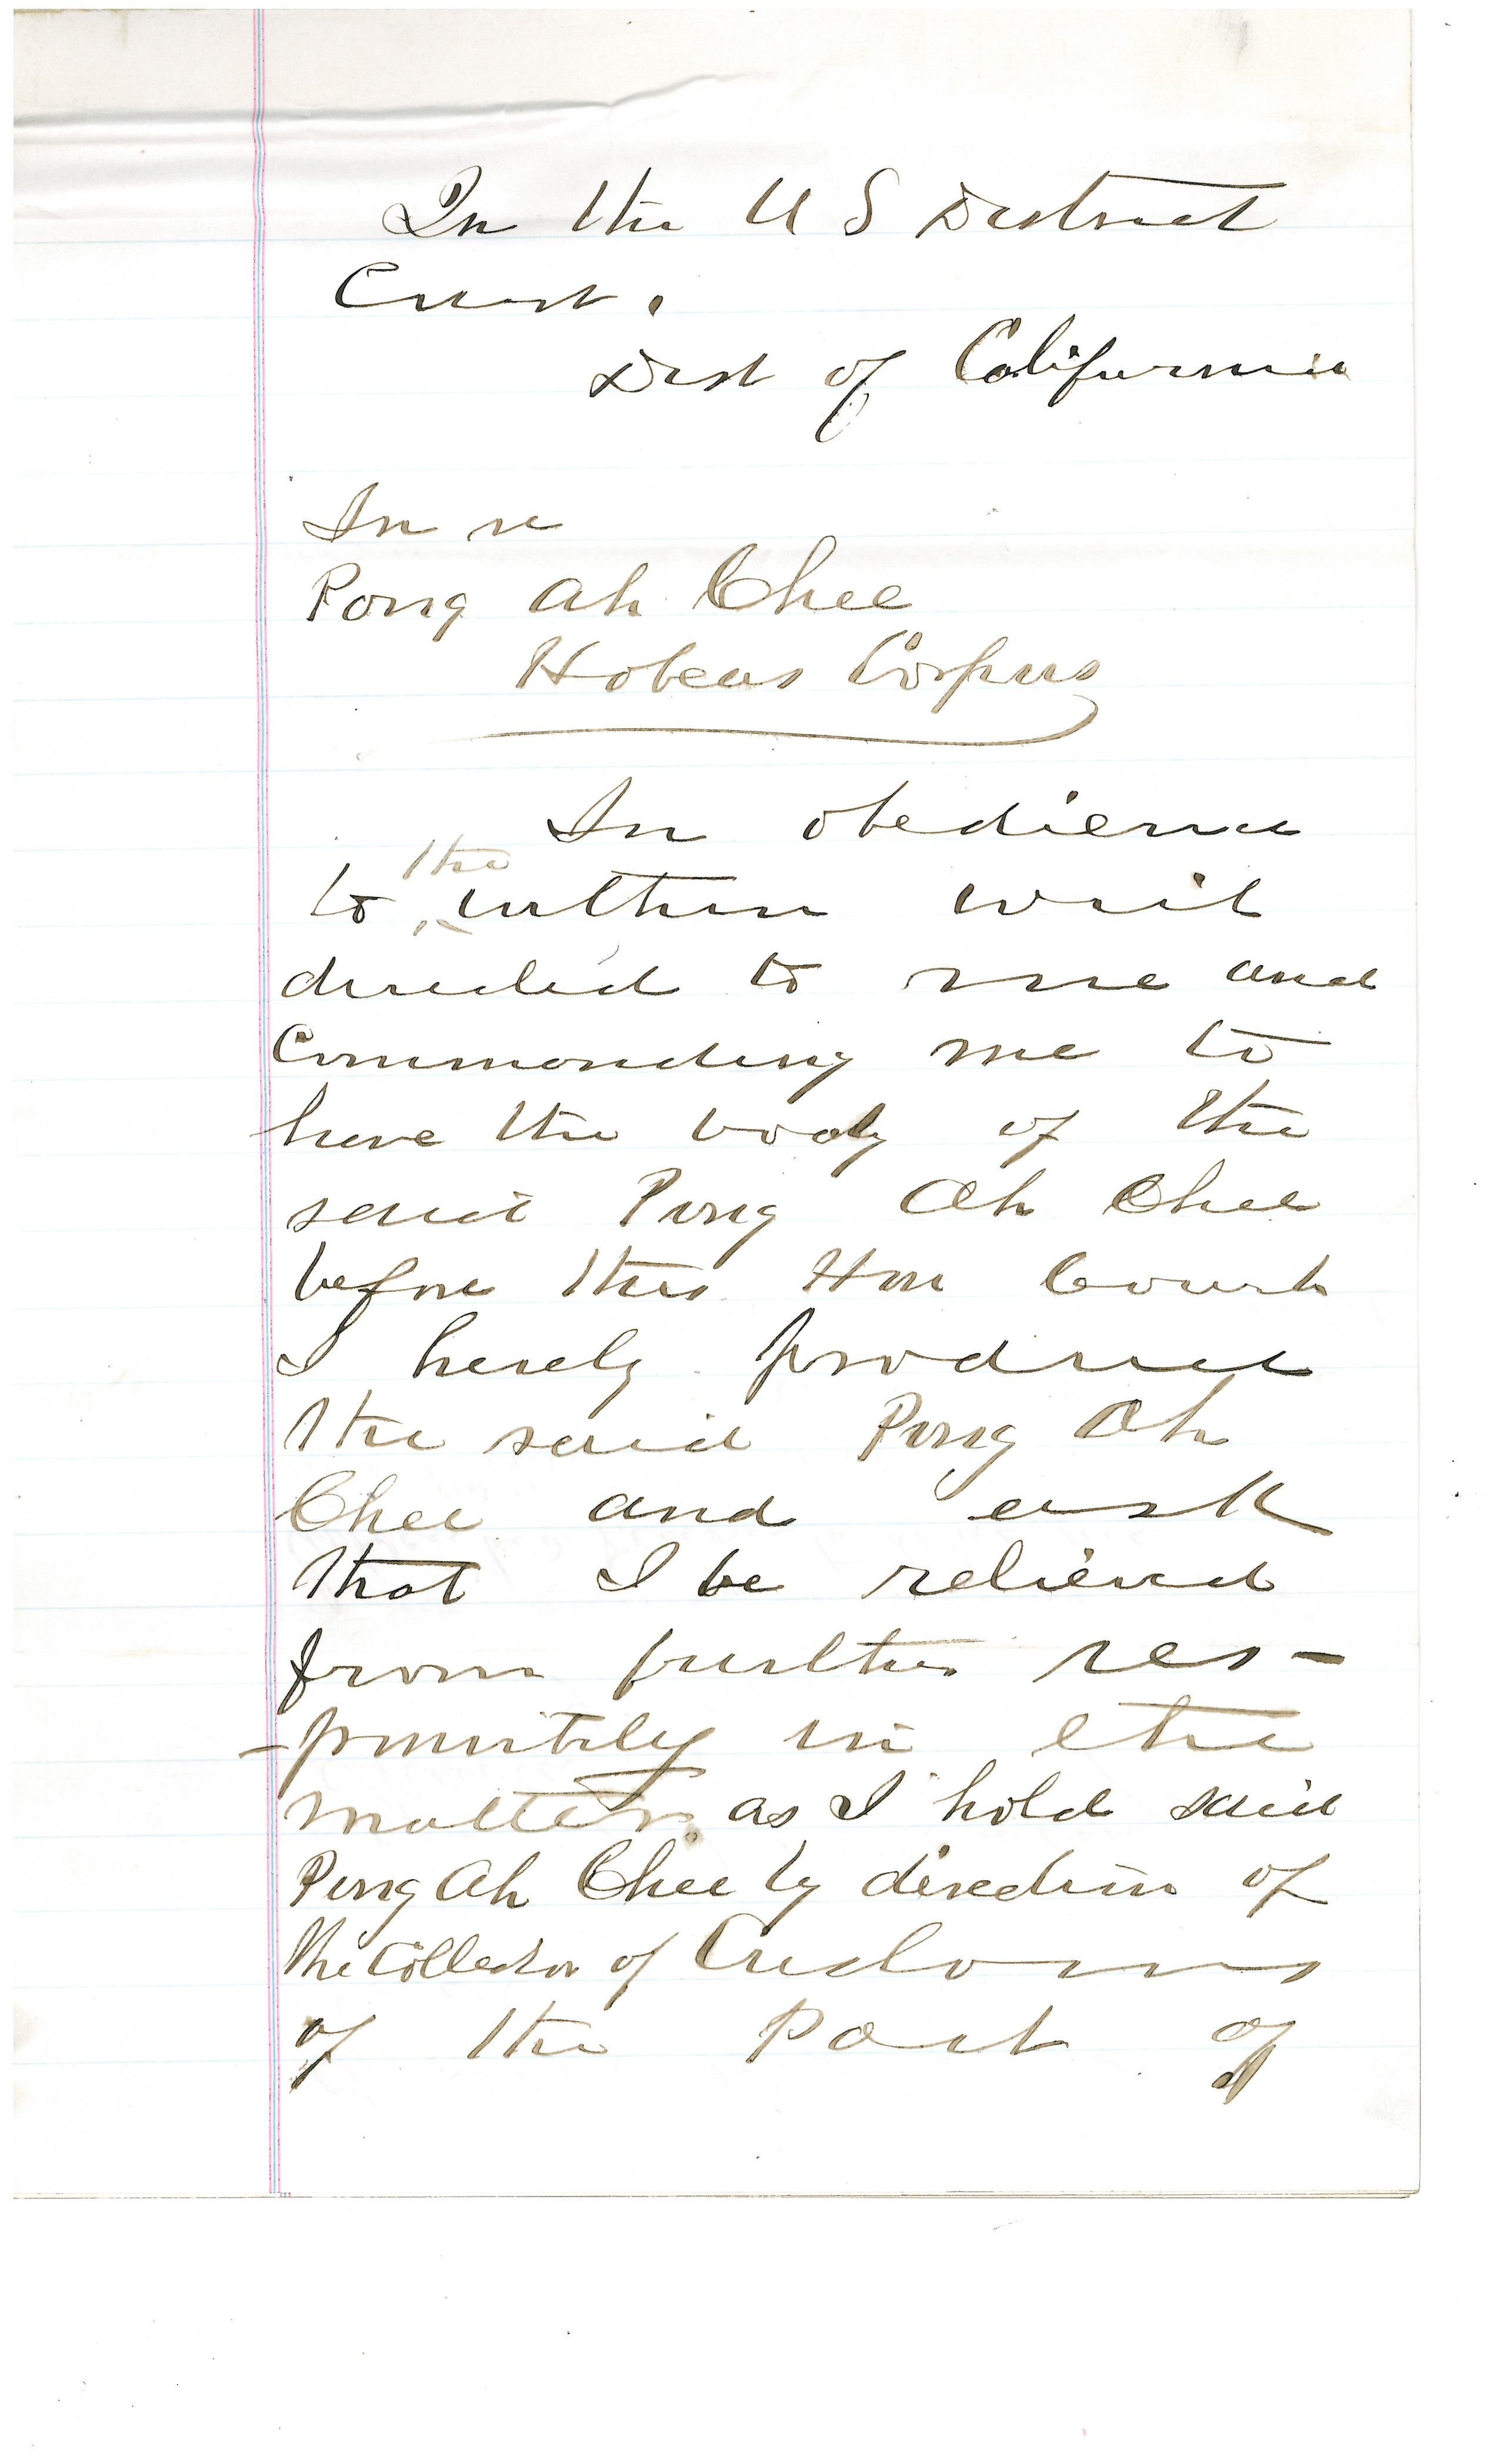 In the U S District
Court.
Dist of California
In re
Pong Ah Chee
Habeas Corpus
In obedience
the
to within writ
directed to me and
Commanding me to
have the body of the
said Pong Ah Chee
before this Hon Court
I hereby produce
the said Pong Ah
Chee and ask
that I be relieved
from further res-
-ponsibility in the
matter as I hold said
Pong Ah Chee by direction of
the Collector of Customs
of the Port of